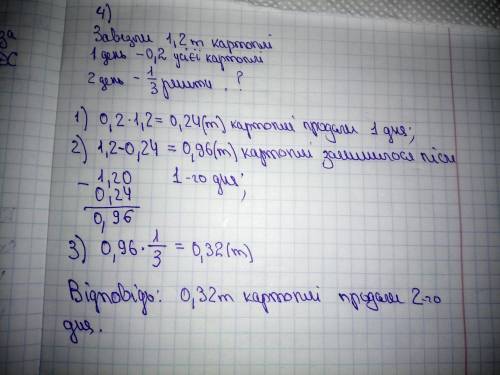 за
4)
Завезли 1,2 т картоплі
1 день - 0,2 усієї картоплі
2 день - 1/3 решти. ?
1) 0,2 · 1,2 = 0,24 (т) картоплі продали 1 дня;
2) 1,2 - 0,24 = 0,96 (т) картоплі залишилося після
1-го дня;
- 1,20
0,24
0,96
3) 0,96 · 1/3 = 0,32 (т)
Відповідь: 0,32 т картоплі продали 2-го
дня.